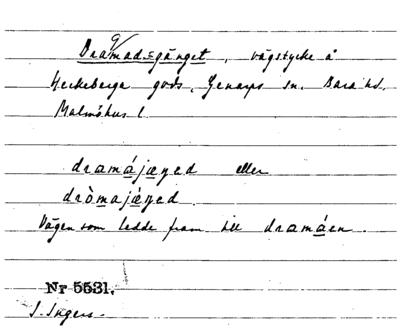 Dramad=gånget, vägstycke å
Heckeberga gods, Genarps sn. Bara hd.
Malmöhus l.
dramájæŋed eller
dròmajæ̀ŋed.
Vägen som ledde fram till dramáen.
Nr 5531.
I. Ingers.